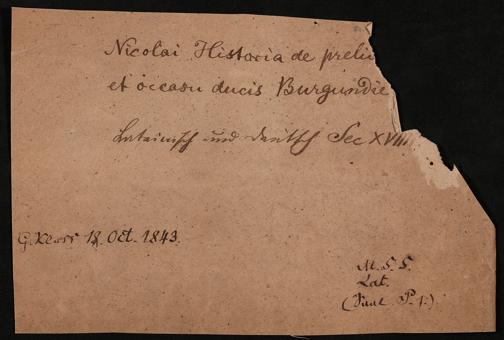 Nicolai Historia de preli
et occasu ducis Burgundie
Lateinisch und deutsch Sec XVIII
G. Kloss 18. Oct. 1843.
M. S. S.
Lat.